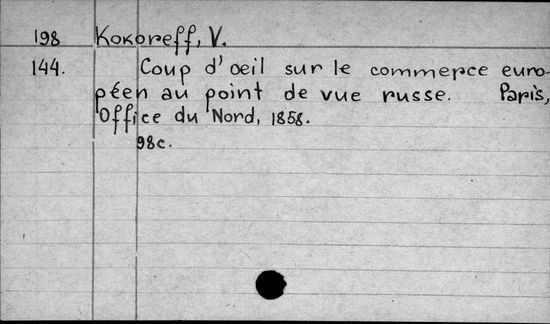 198 Kokoreff, V.
144. Coup d'oeil sur le commerce euro-
péen au point de vue russe. Paris,
Office du Nord, 1858.
98c.